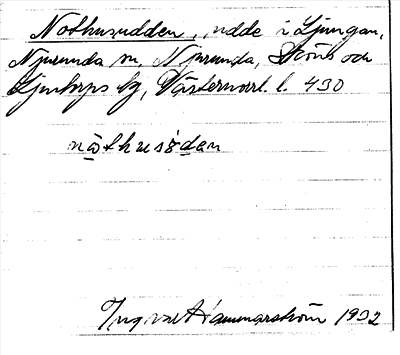 Nothusudden, udde i Ljungan,
Njurunda sn, Njurunda, Ströms och
Ljustorps tg, Västernorrl. l. 430
nåthusudan
Ingvar Hammarström 1932